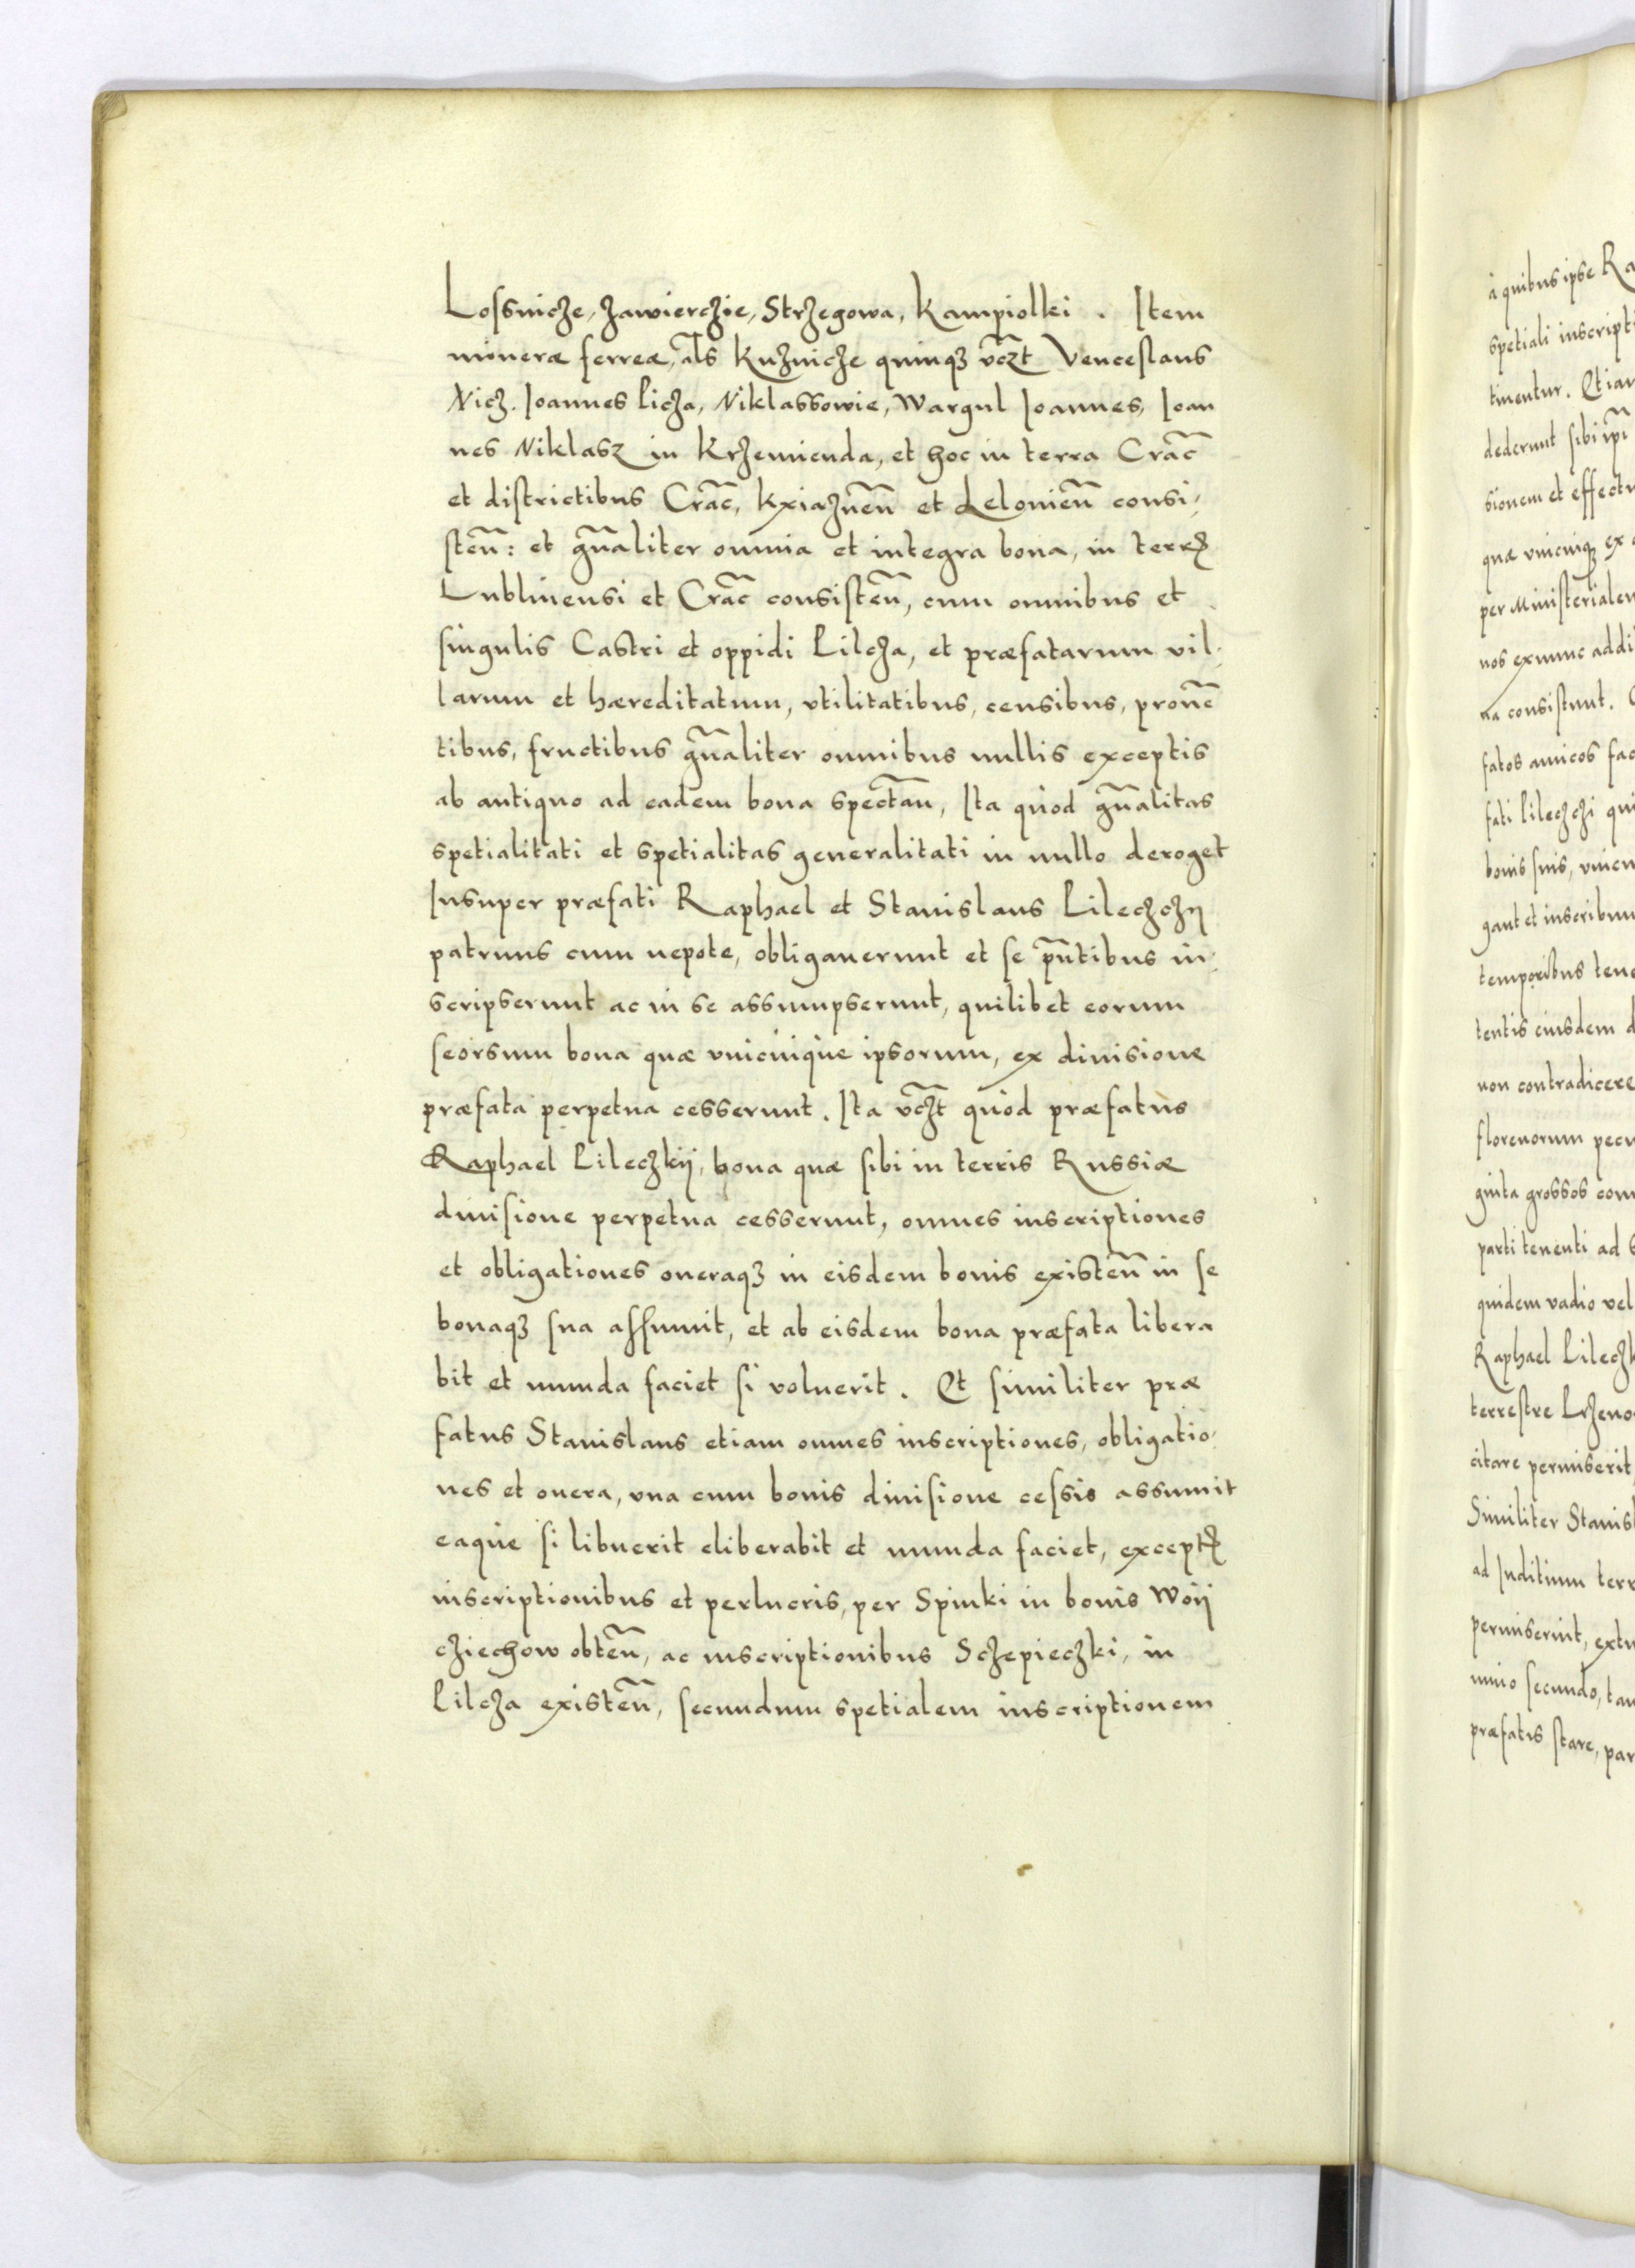 Lossnicze, Zawierczie, Strzegowa, Kampiolki. Item
mineræ ferreæ, al̃s Kuznicze quinqꝫ vc̃zt Venceslaus
Nicz. Joannes licza, Niklassowie, Wargul Joannes, Joan
nes Niklasz in Krzemienda, et hoc in terra Crac̃
et districtibus Crac̃, Kxiaznen̄ et Lelouien̄ consi-
sten̄: et gn̄aliter omnia et integra bona, in terrꝭ
Lublinensi et Crac̃ consisten̄, cum omnibus et
singulis Castri et oppidi Pilcza, et præfatarum vil-
larum et hæreditatum, vtilitatibus, censibus, prouē
tibus, fructibus gn̄aliter omnibus nullis exceptis
ab antiquo ad eadem bona spectan̄, Ita quod gn̄alitas
spetialitati et spetialitas generalitati in nullo deroget
Insuper præfati Raphael et Stanislaus Pileczczÿ
patruus cum nepote, obligauerunt et se pn̄tibus in-
scripserunt ac in se assumpserunt, quilibet eorum
seorsum bona quæ vnicuique ipsorum, ex diuisione
præfata perpetua cesserunt. Ita vc̃zt quod præfatus
Raphael Pileczkij, bona quæ sibi in terris Russiæ
diuisione perpetua cesserunt, omnes inscriptiones
et obligationes oneraqꝫ in eisdem bonis existen̄ in se
bonaqꝫ sua assumit, et ab eisdem bona præfata libera
bit et munda faciet si voluerit. Et similiter præ
fatus Stanislaus etiam omnes inscriptiones, obligatio-
nes et onera, vna cum bonis diuisione cessis assumit
eaque si libuerit eliberabit et munda faciet, exceptꝭ
inscriptionibus et perlucris, per Spinki in bonis Woij
cziechow obten̄, ac inscriptionibus Sczepieczki, in
Pilcza existen̄, secundum spetialem inscriptionem
à quibus ipse Ra
spetiali inscripti
tinentur. Etiam
dederunt sibi ip̄i
sionem et effectu
quæ vnicuiqꝫ ex
per Ministerialem
nos exnunc addi
na consistunt.
fatos amicos fac
fati Pileczczi qui
bonis suis, vnicu
gant et inscribun
temporibus tene
tentis eiusdem d
non contradicere
florenorum pecu
ginta grossos com
parti tenenti ad s
quidem vadio vel
Raphael Pileczk
terrestre Lrzeno
citare permiserit
Similiter Stanisl
ad Juditium terr
permiserint, extu
mio secundo, tan
præfatis stare, par